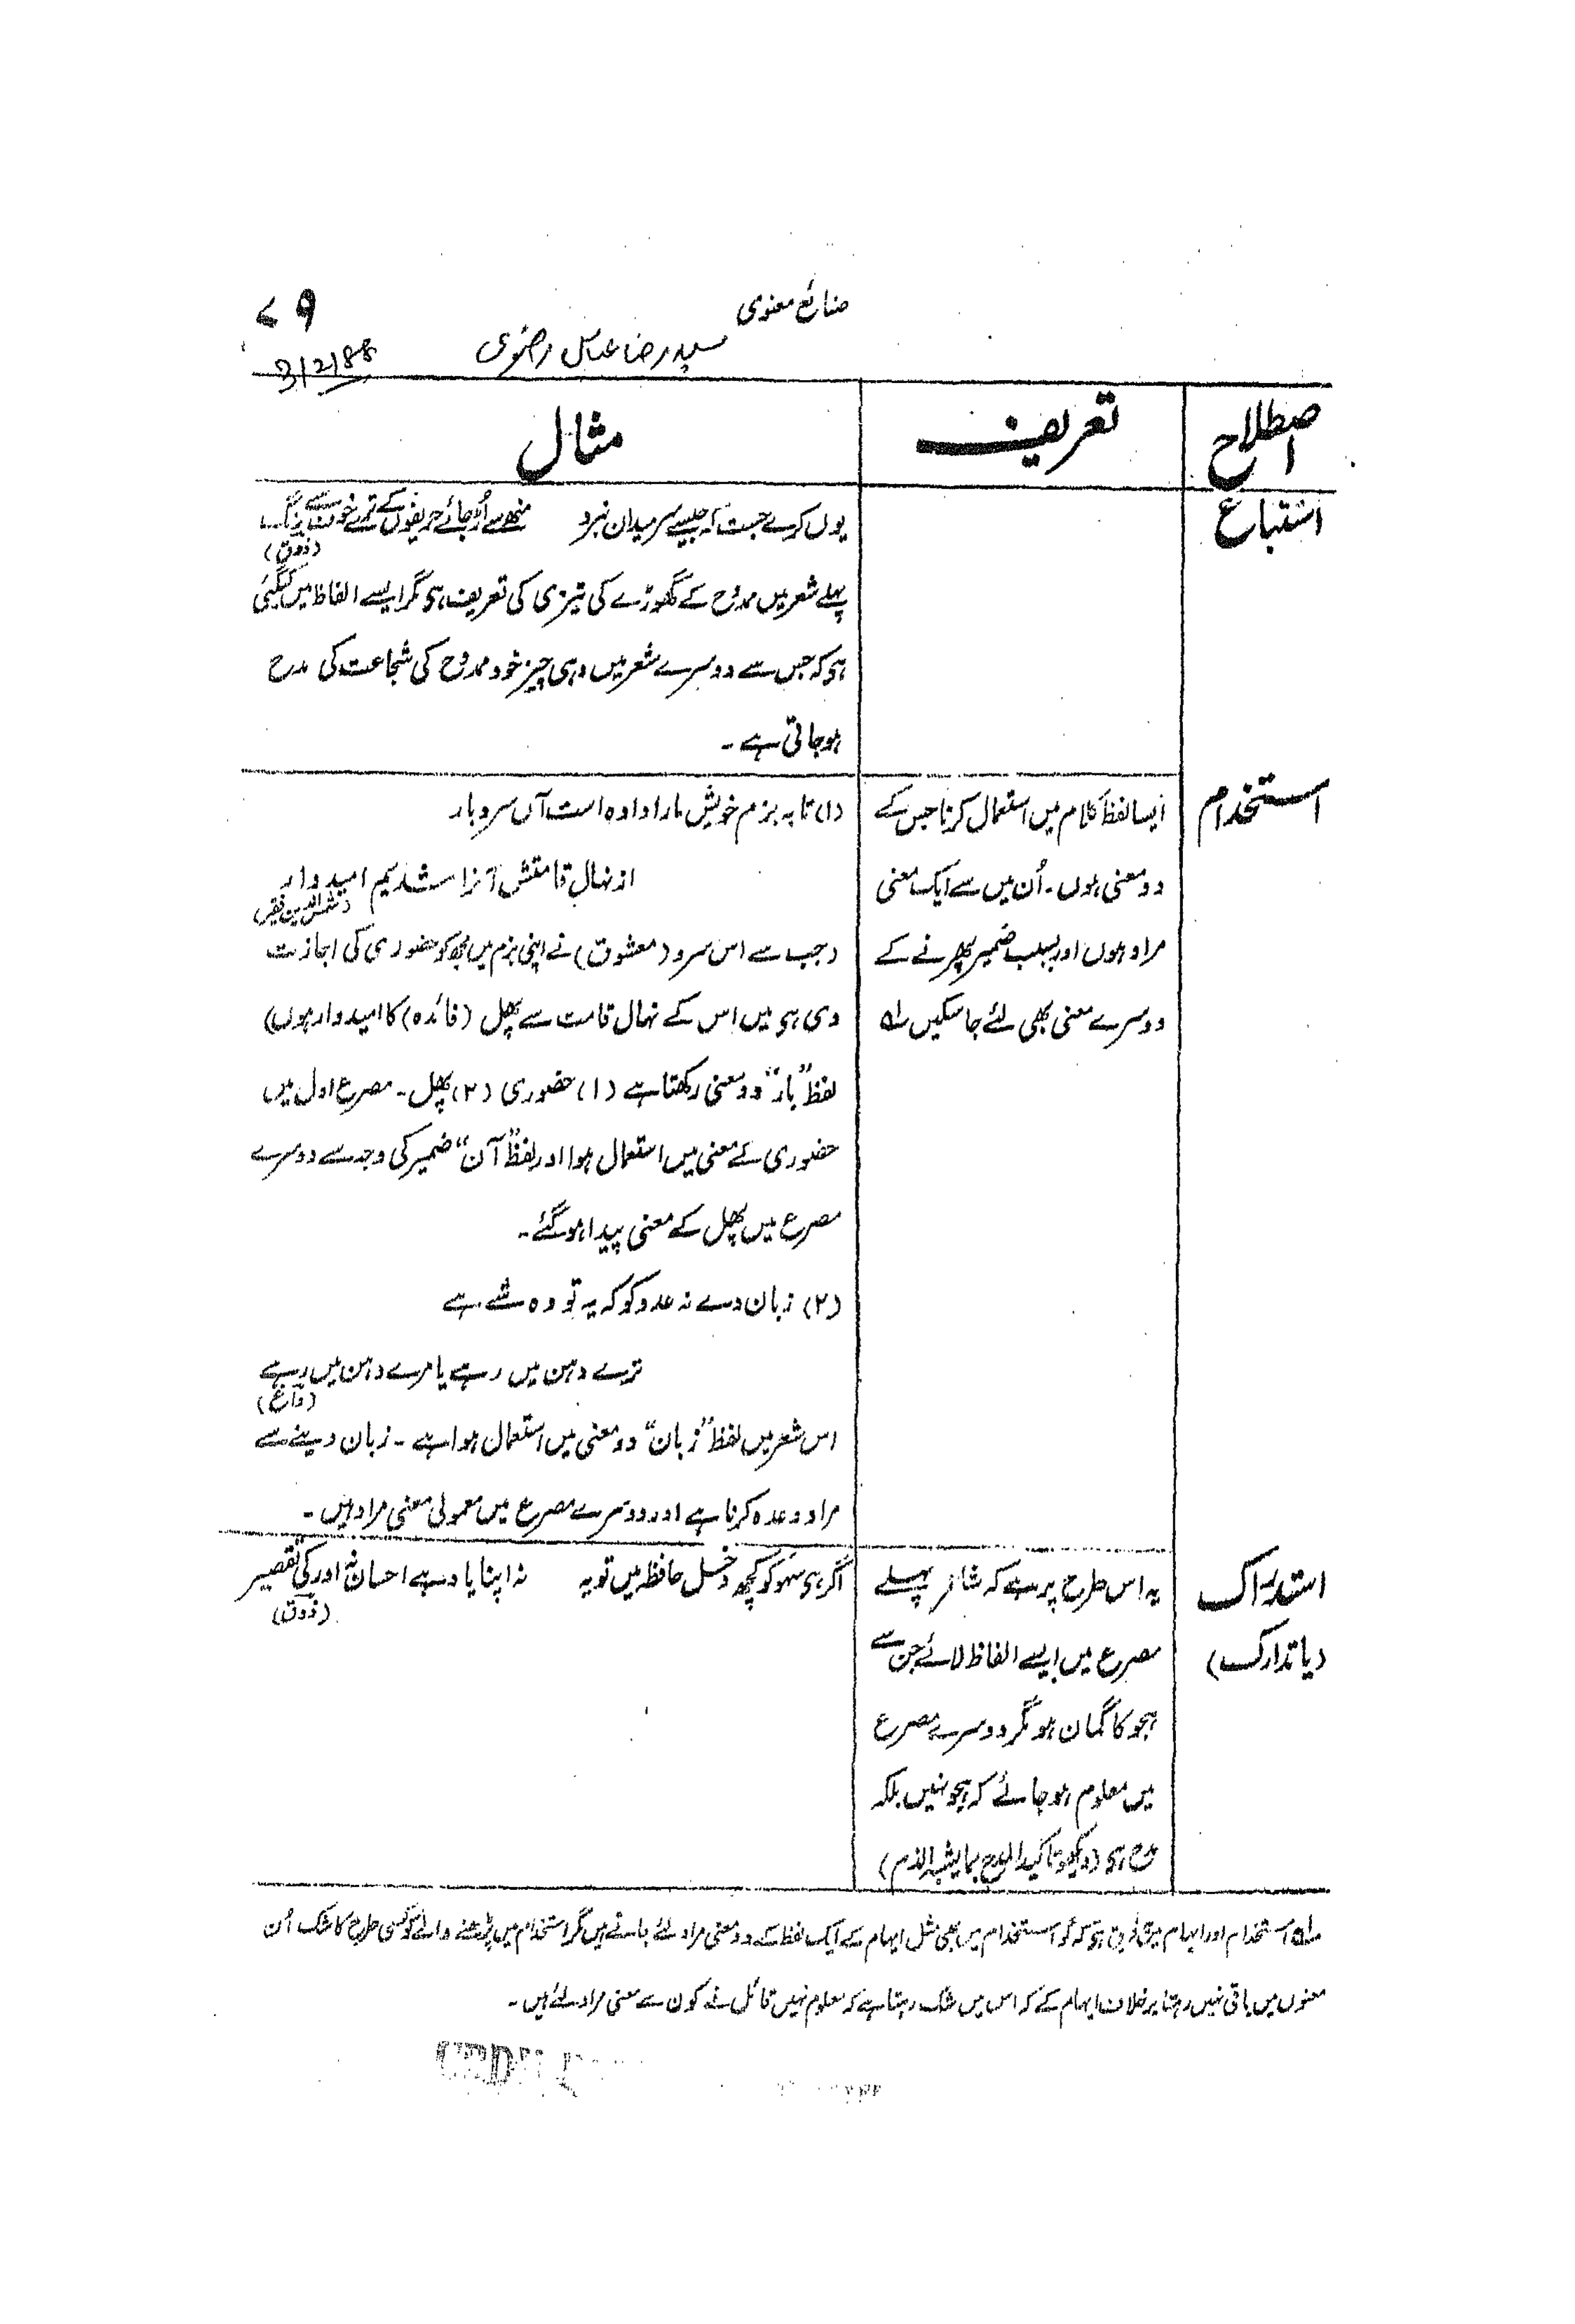 صنائع معنوی
۷۹
سید رضا عباس رضوی
3/2/88
اصطلاح
تعریف
مثال
استتباع
یوں کرے جست کہ جیسے سر میدان نبرد منھ سے اُڑ جائے حریفوں کے ترے خوف سے رنگ
(ذوق)
پہلے شعر میں ممدوح کے گھوڑے کی تیزی کی تعریف ہی مگر ایسے الفاظ میں کیگئی
ہی کہ جس سے دوسرے شعر میں وہی چیز خود ممدوح کی شجاعت کی مدح
ہوجاتی ہے۔
استخدام
ایسا لفظ کلام میں استعمال کرنا جس کے
دو معنی ہوں۔ اُن میں سے ایک معنی
مراد ہوں اور بسبب ضمیر پھرنے کے
دوسرے معنی بھی لئے جاسکیں ؎۱
(۱) تا بہ بزم خویش مارا دادہ است آں سرو بار
از نہال قامتش آنرا شدیم امیدوار
(شمس الدین فقیر)
(جب سے اس سرو (معشوق) نے اپنی بزم میں مجھکو حضوری کی اجازت
دی ہی میں اس کے نہال قامت سے پھل (فائدہ) کا امیدوار ہوں)
لفظ "بار" دو معنی رکھتا ہے (۱) حضوری (۲) پھل۔ مصرع اول میں
حضوری کے معنی میں استعمال ہوا اور لفظ "آن" ضمیر کی وجہ سے دوسرے
مصرع میں پھل کے معنی پیدا ہوگئے۔
(۲) زبان دے نہ عدو کو کہ یہ تو وہ شے ہے
ترے دہن میں رہے یا مرے دہن میں رہے
(داغ)
اس شعر میں لفظ "زبان" دو معنی میں استعمال ہوا ہے۔ زبان دینے سے
مراد وعدہ کرنا ہے اور دوسرے مصرع میں معمولی معنی مراد ہیں۔
استدراک
(یا تدارک)
یہ اس طرح پر ہے کہ شاعر پہلے
مصرع میں ایسے الفاظ لائے جن سے
ہجو کا گمان ہو مگر دوسرے مصرع
میں معلوم ہوجائے کہ ہجو نہیں بلکہ
مدح ہی (دیکھو تاکید المدح بمایشبہ الذم)
اگر ہی سہو کو کچھ دخل حافظہ میں تو یہ نہ اپنا یاد ہے احساں نہ اور کی تقصیر
(ذوق)
؎۱ استخدام اور ایہام میں فرق ہی کہ گو استخدام میں بھی مثل ایہام کے ایک لفظ کے دو معنی مراد لئے جاتے ہیں مگر استخدام میں پڑھنے والے کو کسی طرح کا شک اُن
معنوں میں باقی نہیں رہتا برخلاف ایہام کے کہ اس میں شک رہتا ہے کہ معلوم نہیں قائل نے کون سے معنی مراد لئے ہیں۔